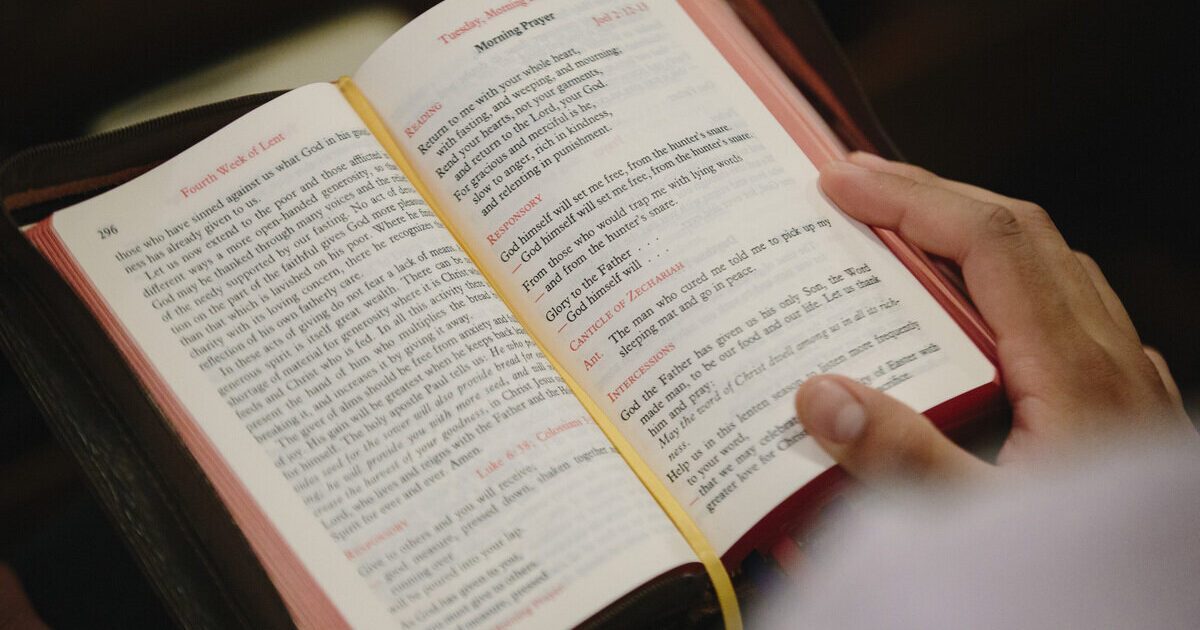 296
Fourth Week of Lent
those who have sinned against us what God in his good-
ness has already given to us.
Let us now extend to the poor and those afflicted
different ways a more open-handed generosity, so
God may be thanked through many voices and the
of the needy supported by our fasting. No act of
tion on the part of the faithful gives God more
than that which is lavished on his poor. Where he
charity with its loving concern, there he recognizes the
reflection of his own fatherly care.
In these acts of giving do not fear a lack of means.
generous spirit is itself great wealth. There can be
shortage of material for generosity where it is Christ who
feeds and Christ who is fed. In all this activity there
present the hand of him who multiplies the bread
breaking it, and increases it by giving it away.
The giver of alms should be free from anxiety and
of joy. His gain will be greatest when he keeps back
for himself. The holy apostle Paul tells us: He who
vides seed for the sower will also provide bread for
ing; he will provide you with more seed, and will
crease the harvest of your goodness, in Christ Jesus
Lord, who lives and reigns with the Father and the
Spirit for ever and ever. Amen.
RESPONSORY Luke 6:38; Colossians
Give to others and you will receive,
good measure, pressed down, shaken together
running over
will be poured into your lap.
As God has given to you,
you must give to others.
measure, pressed
Morning Prayer
Tuesday, Morning
Morning Prayer
READING Joel 2:12-13
Return to me with your whole heart,
with fasting, and weeping, and mourning;
Rend your hearts, not your garments,
and return to the Lord, your God.
For gracious and merciful is he,
slow to anger, rich in kindness,
and relenting in punishment.
RESPONSORY
God himself will set me free, from the hunter's snare.
— God himself will set me free, from the hunter's snare.
From those who would trap me with lying words
— and from the hunter's snare.
Glory to the Father . . . .
— God himself will . . . .
CANTICLE OF ZECHARIAH
Ant. The man who cured me told me to pick up my
sleeping mat and go in peace.
INTERCESSIONS
God the Father has given us his only Son, the Word
made man, to be our food and our life. Let us thank
him and pray:
May the word of Christ dwell among us in all its rich-
ness.
Help us in this lenten season to listen more frequently
to your word,
— that we may celebrate of Easter with
greater love for Christ